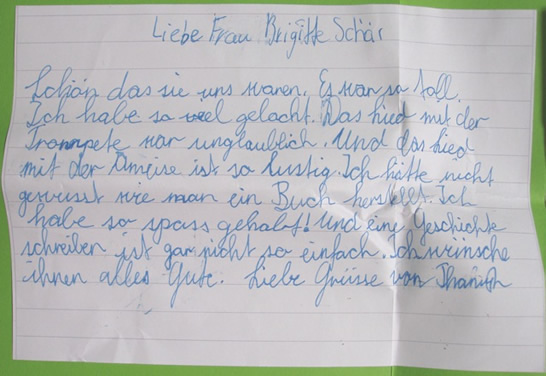 Liebe Frau Brigitte Schär
Schön das sie uns waren. Es war so toll.
Ich habe so viel gelacht. Das Lied mit der
Trompete war unglaublich. Und das Lied
mit der Ameise ist so lustig. Ich hätte nicht
gewusst wie man ein Buch herstellt. Ich
habe so spass gehabt! Und eine Geschichte
schreiben ist gar nicht so einfach. Ich wünsche
ihnen alles Gute. Liebe Grüsse von